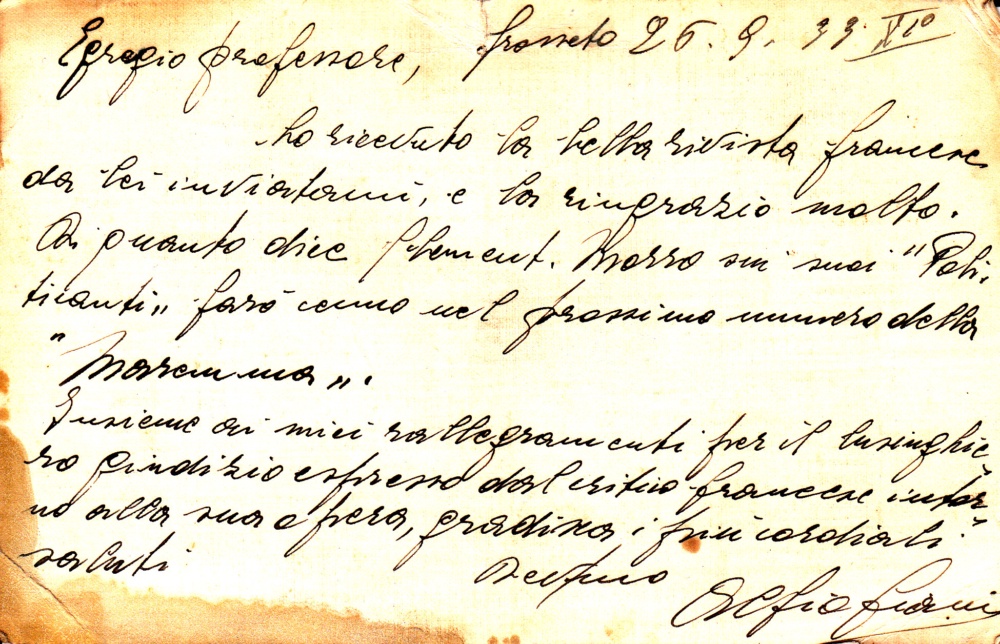 Egregio professore, Grosseto 26. 9. 33 XIº
ho ricevuto la bella rivista francese
da lei inviatami, e la ringrazio molto.
Di quanto dice Morro sui suoi "Poli-
ticanti" farò cenno nel prossimo numero della
"Maremma".
Insieme ai miei rallegramenti per il lusinghie-
ro giudizio espresso dal critico francese intor-
no alla sua opera, gradisca i più cordiali
saluti
Alfio